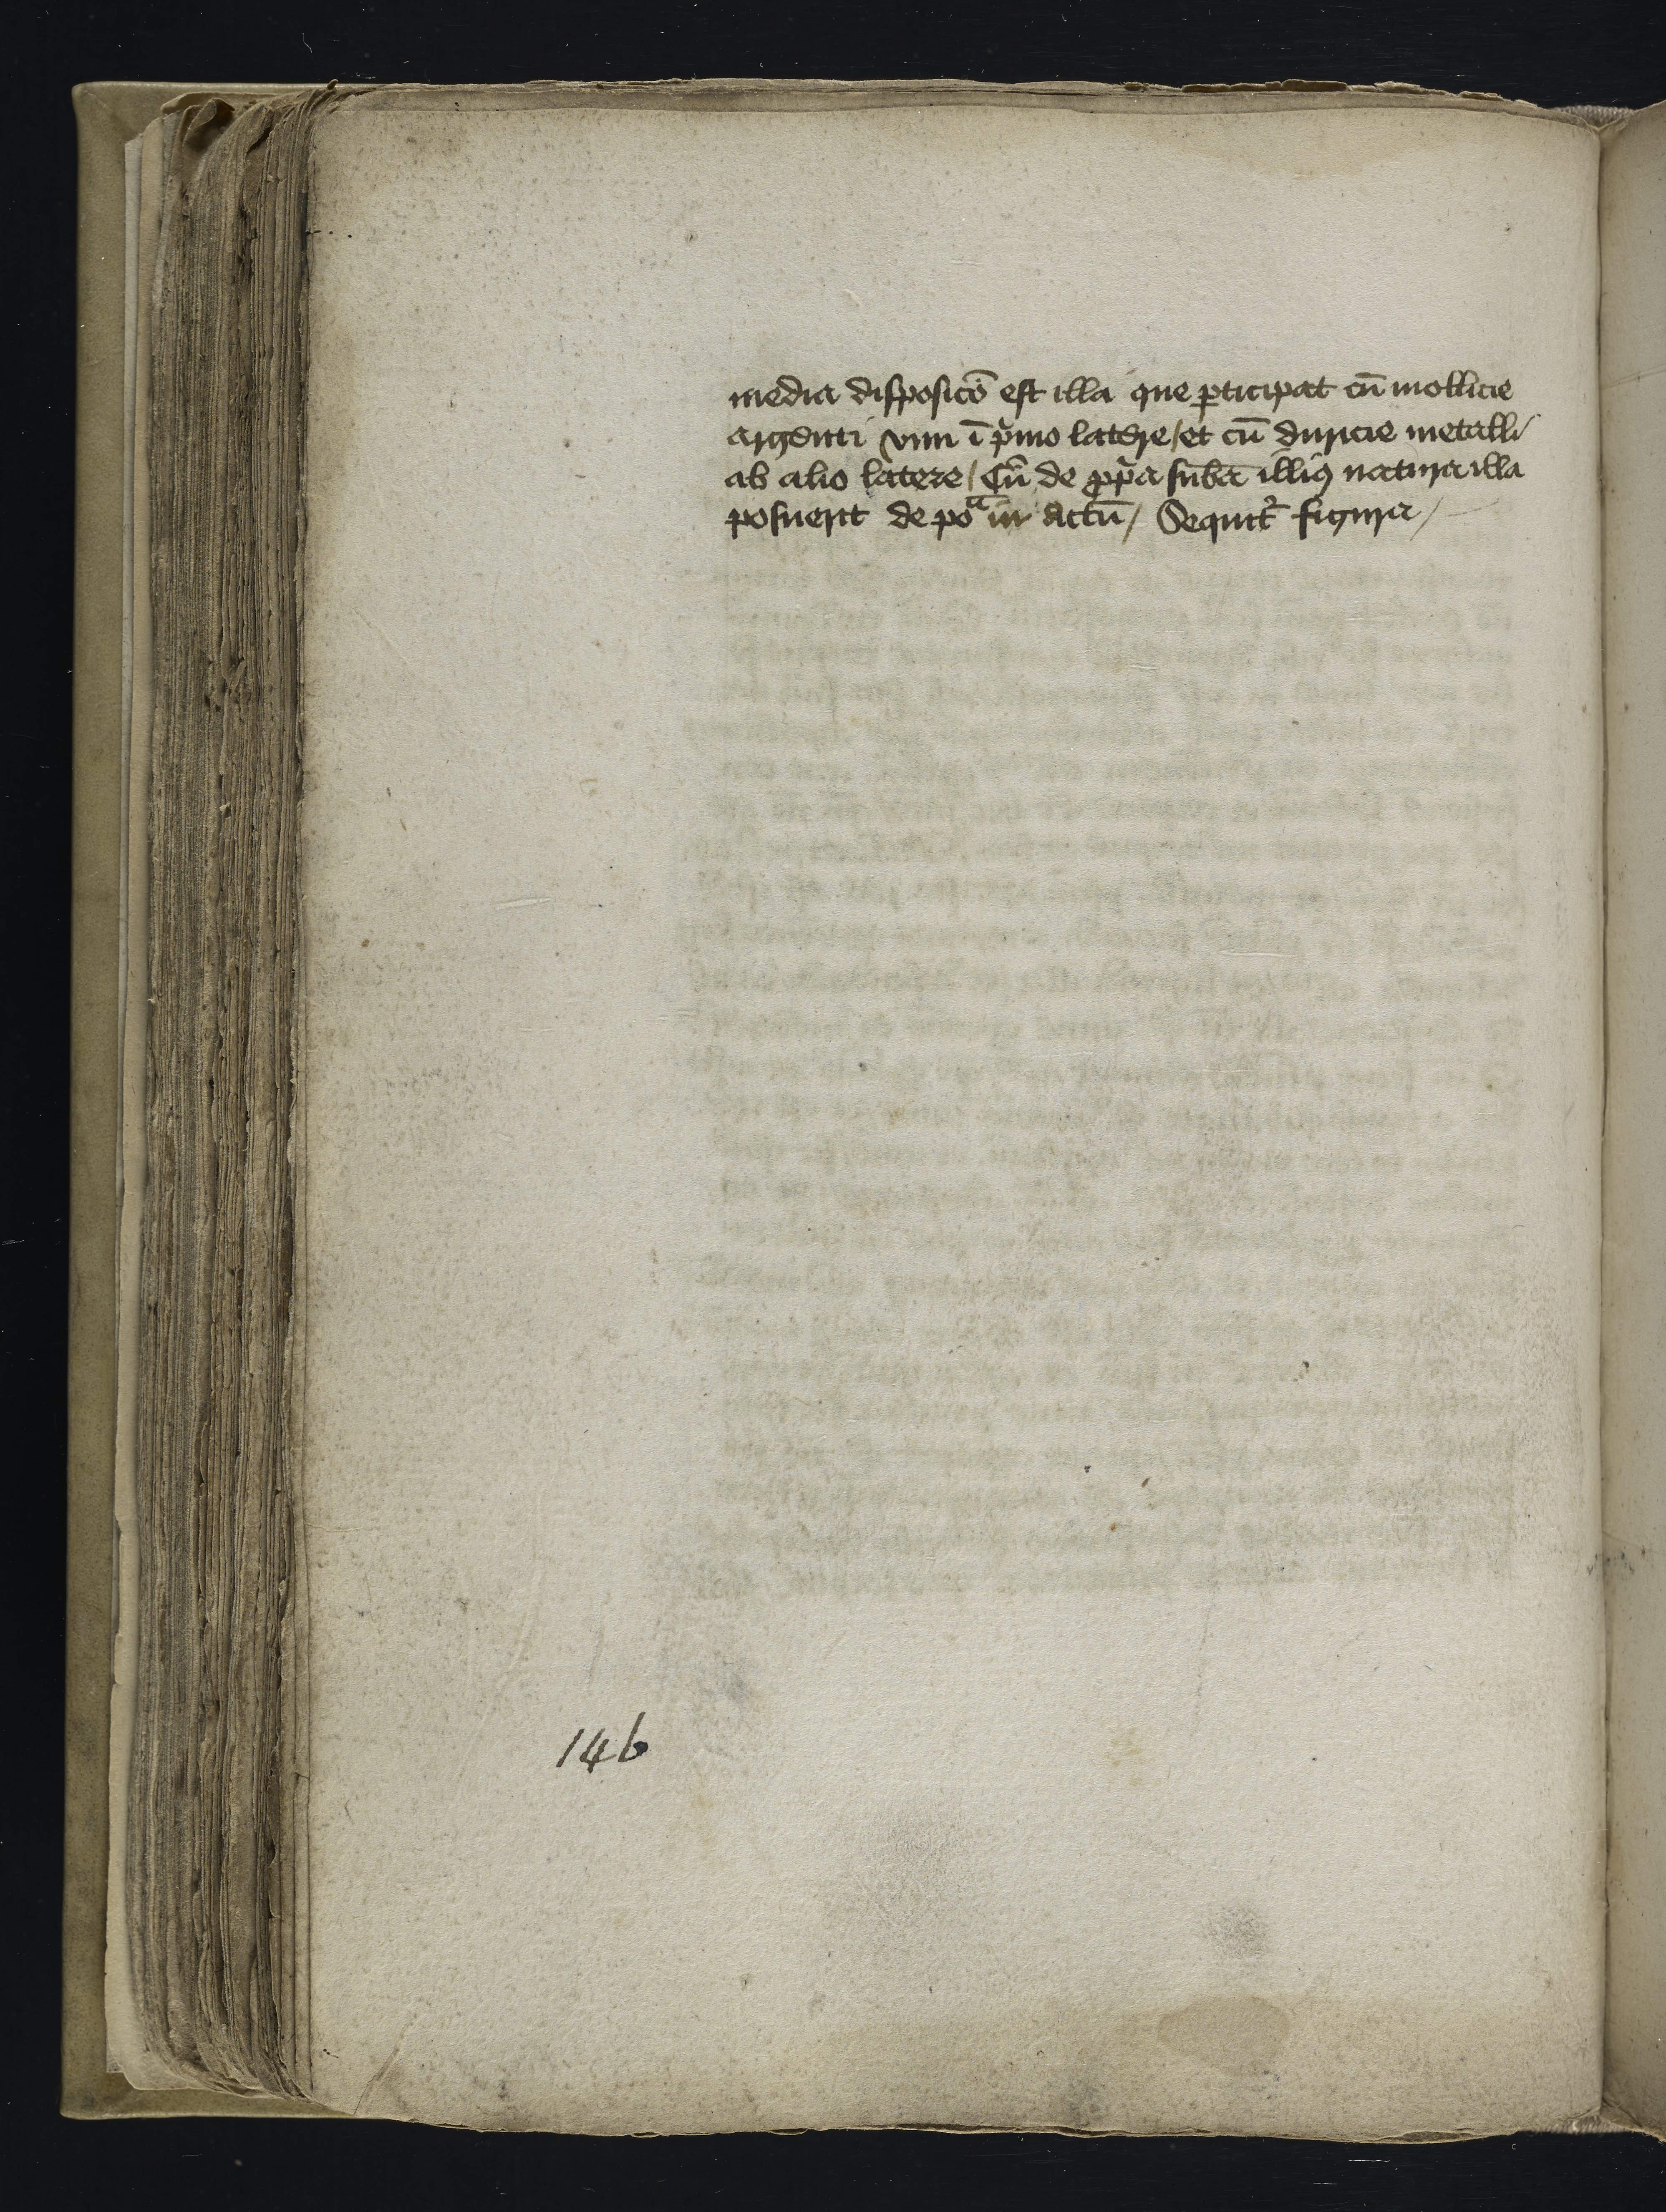 media disposicõ est illa que pticipat cũ mollicie
argenti viui ĩ pmo latere / et cũ duricie metalli
ab alio latere / Cũ de ppa subã illiꝯ natura illa
posuerit de poa in actũ / Sequit᷑ figura /
146